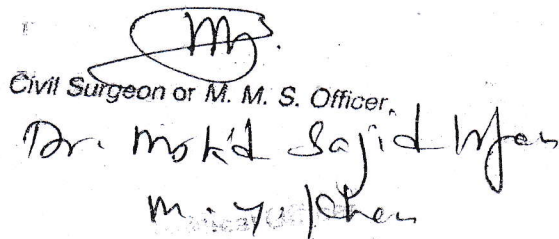 Civil Surgeon or M. M. S. Officer,
Dr. Mohd Sajid Irfan
M. Y. Khan